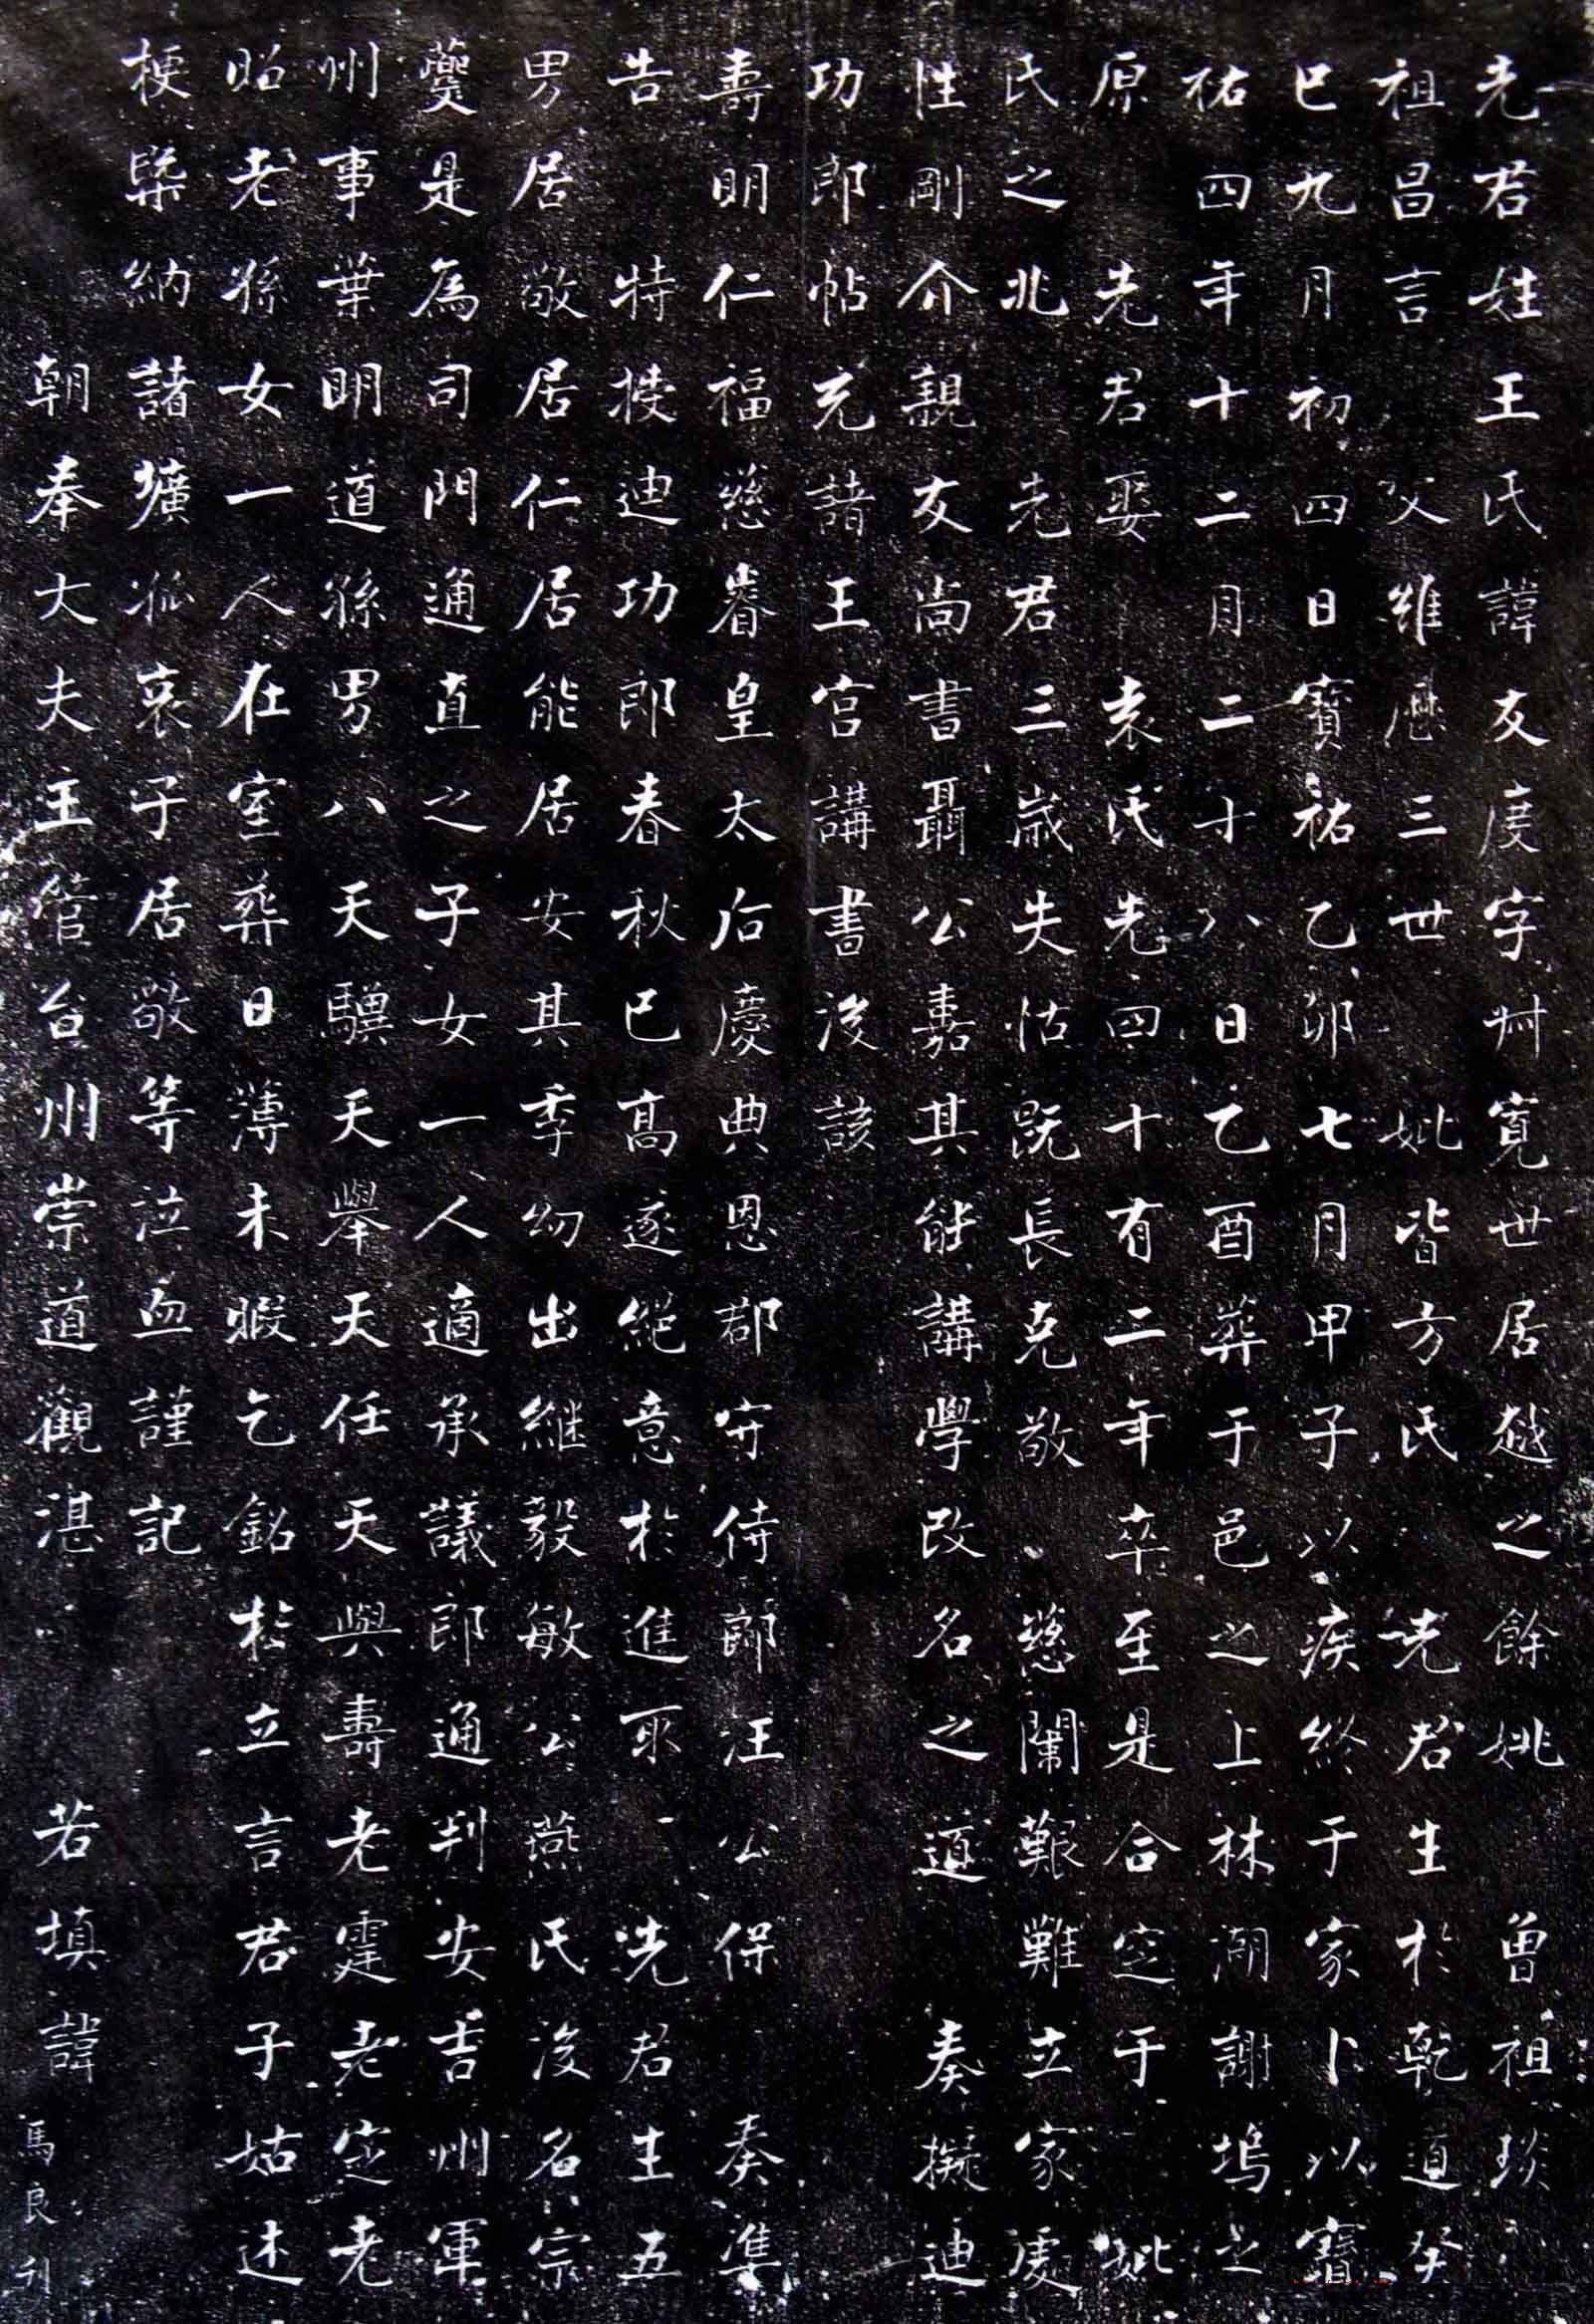 先君姓王氏諱友度字艸寬世居越之餘姚曾祖琰
祖昌言父維曆三世妣皆方氏先君生於乾道癸
巳九月初四日寶祐乙卯七月甲子以疾終于家卜以寶
祐四年十二月二十八日乙酉葬于邑之上林湖謝塢之
原先君娶袁氏先四十有二年卒至是合窆于妣
氏之北先君三歲失怙既長克敬慈闈艱難立家處
性剛介親友尚書聶公嘉其能講學改名之道奏擬迪
功郎帖充諸王宮講書後該
壽明仁福慈睿皇太后慶典恩郡守侍郎汪公保奏準
告特授迪功郎春秋已高遂絕意於進取先君生五
男居敬居仁居能居安其季幼出繼毅敏公燕氏後名宗
夔是為司門通直之子女一人適承議郎通判安吉州軍
州事葉明道孫男八天驥天舉天任天與壽老霆老定老
昭老孫女一人在室葬日薄未暇乞銘於立言君子姑述
梗槩納諸壙孤哀子居敬等泣血謹記
朝奉大夫主管台州崇道觀湛若填諱
馬良刊